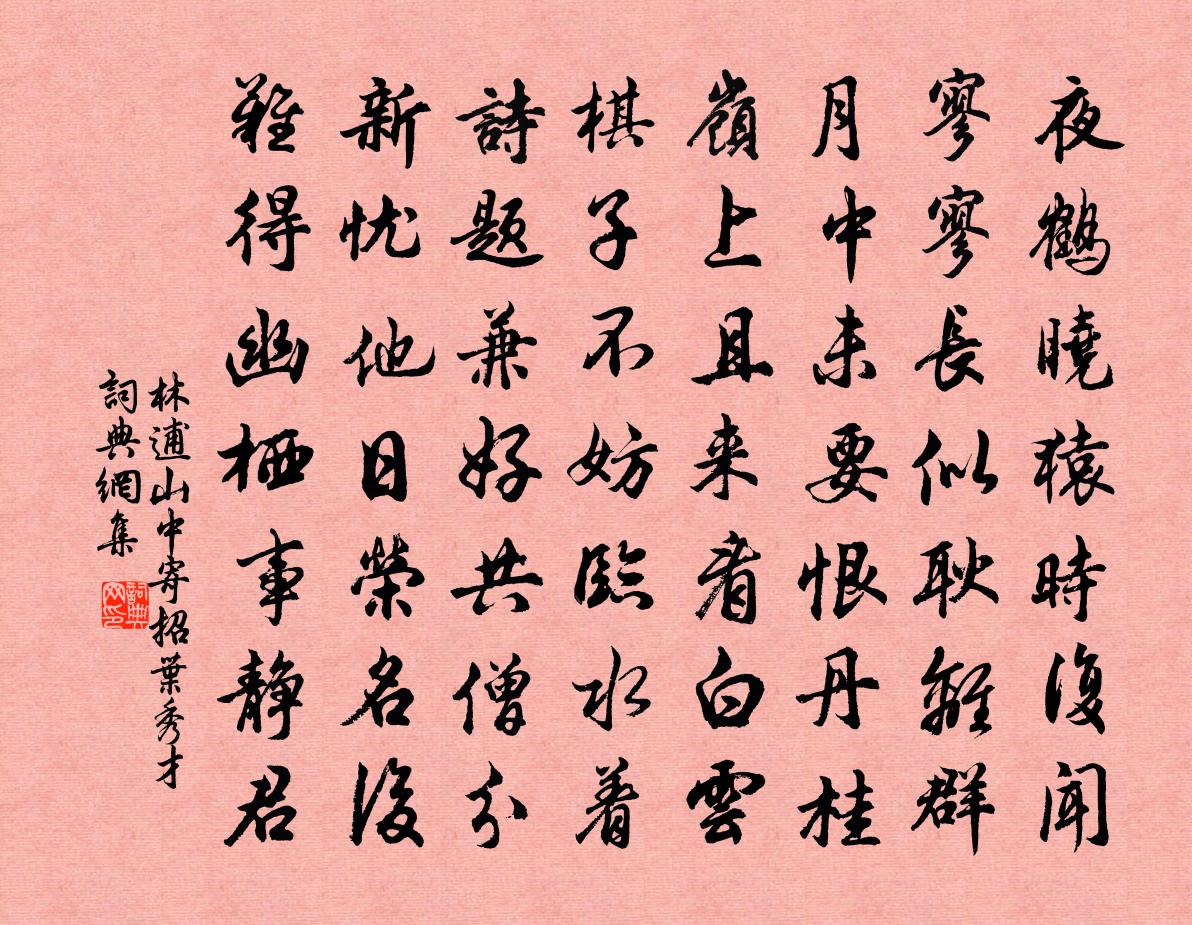 夜鶴曉猿時復聞
寥寥長似耿離群
月中未要恨丹桂
嶺上且来看白雲
棋子不妨臨水着
詩题兼好共僧分
新忧他日榮名後
難得幽栖事静君
林逋山中寄招葉秀才
詞典網集
詞典网印